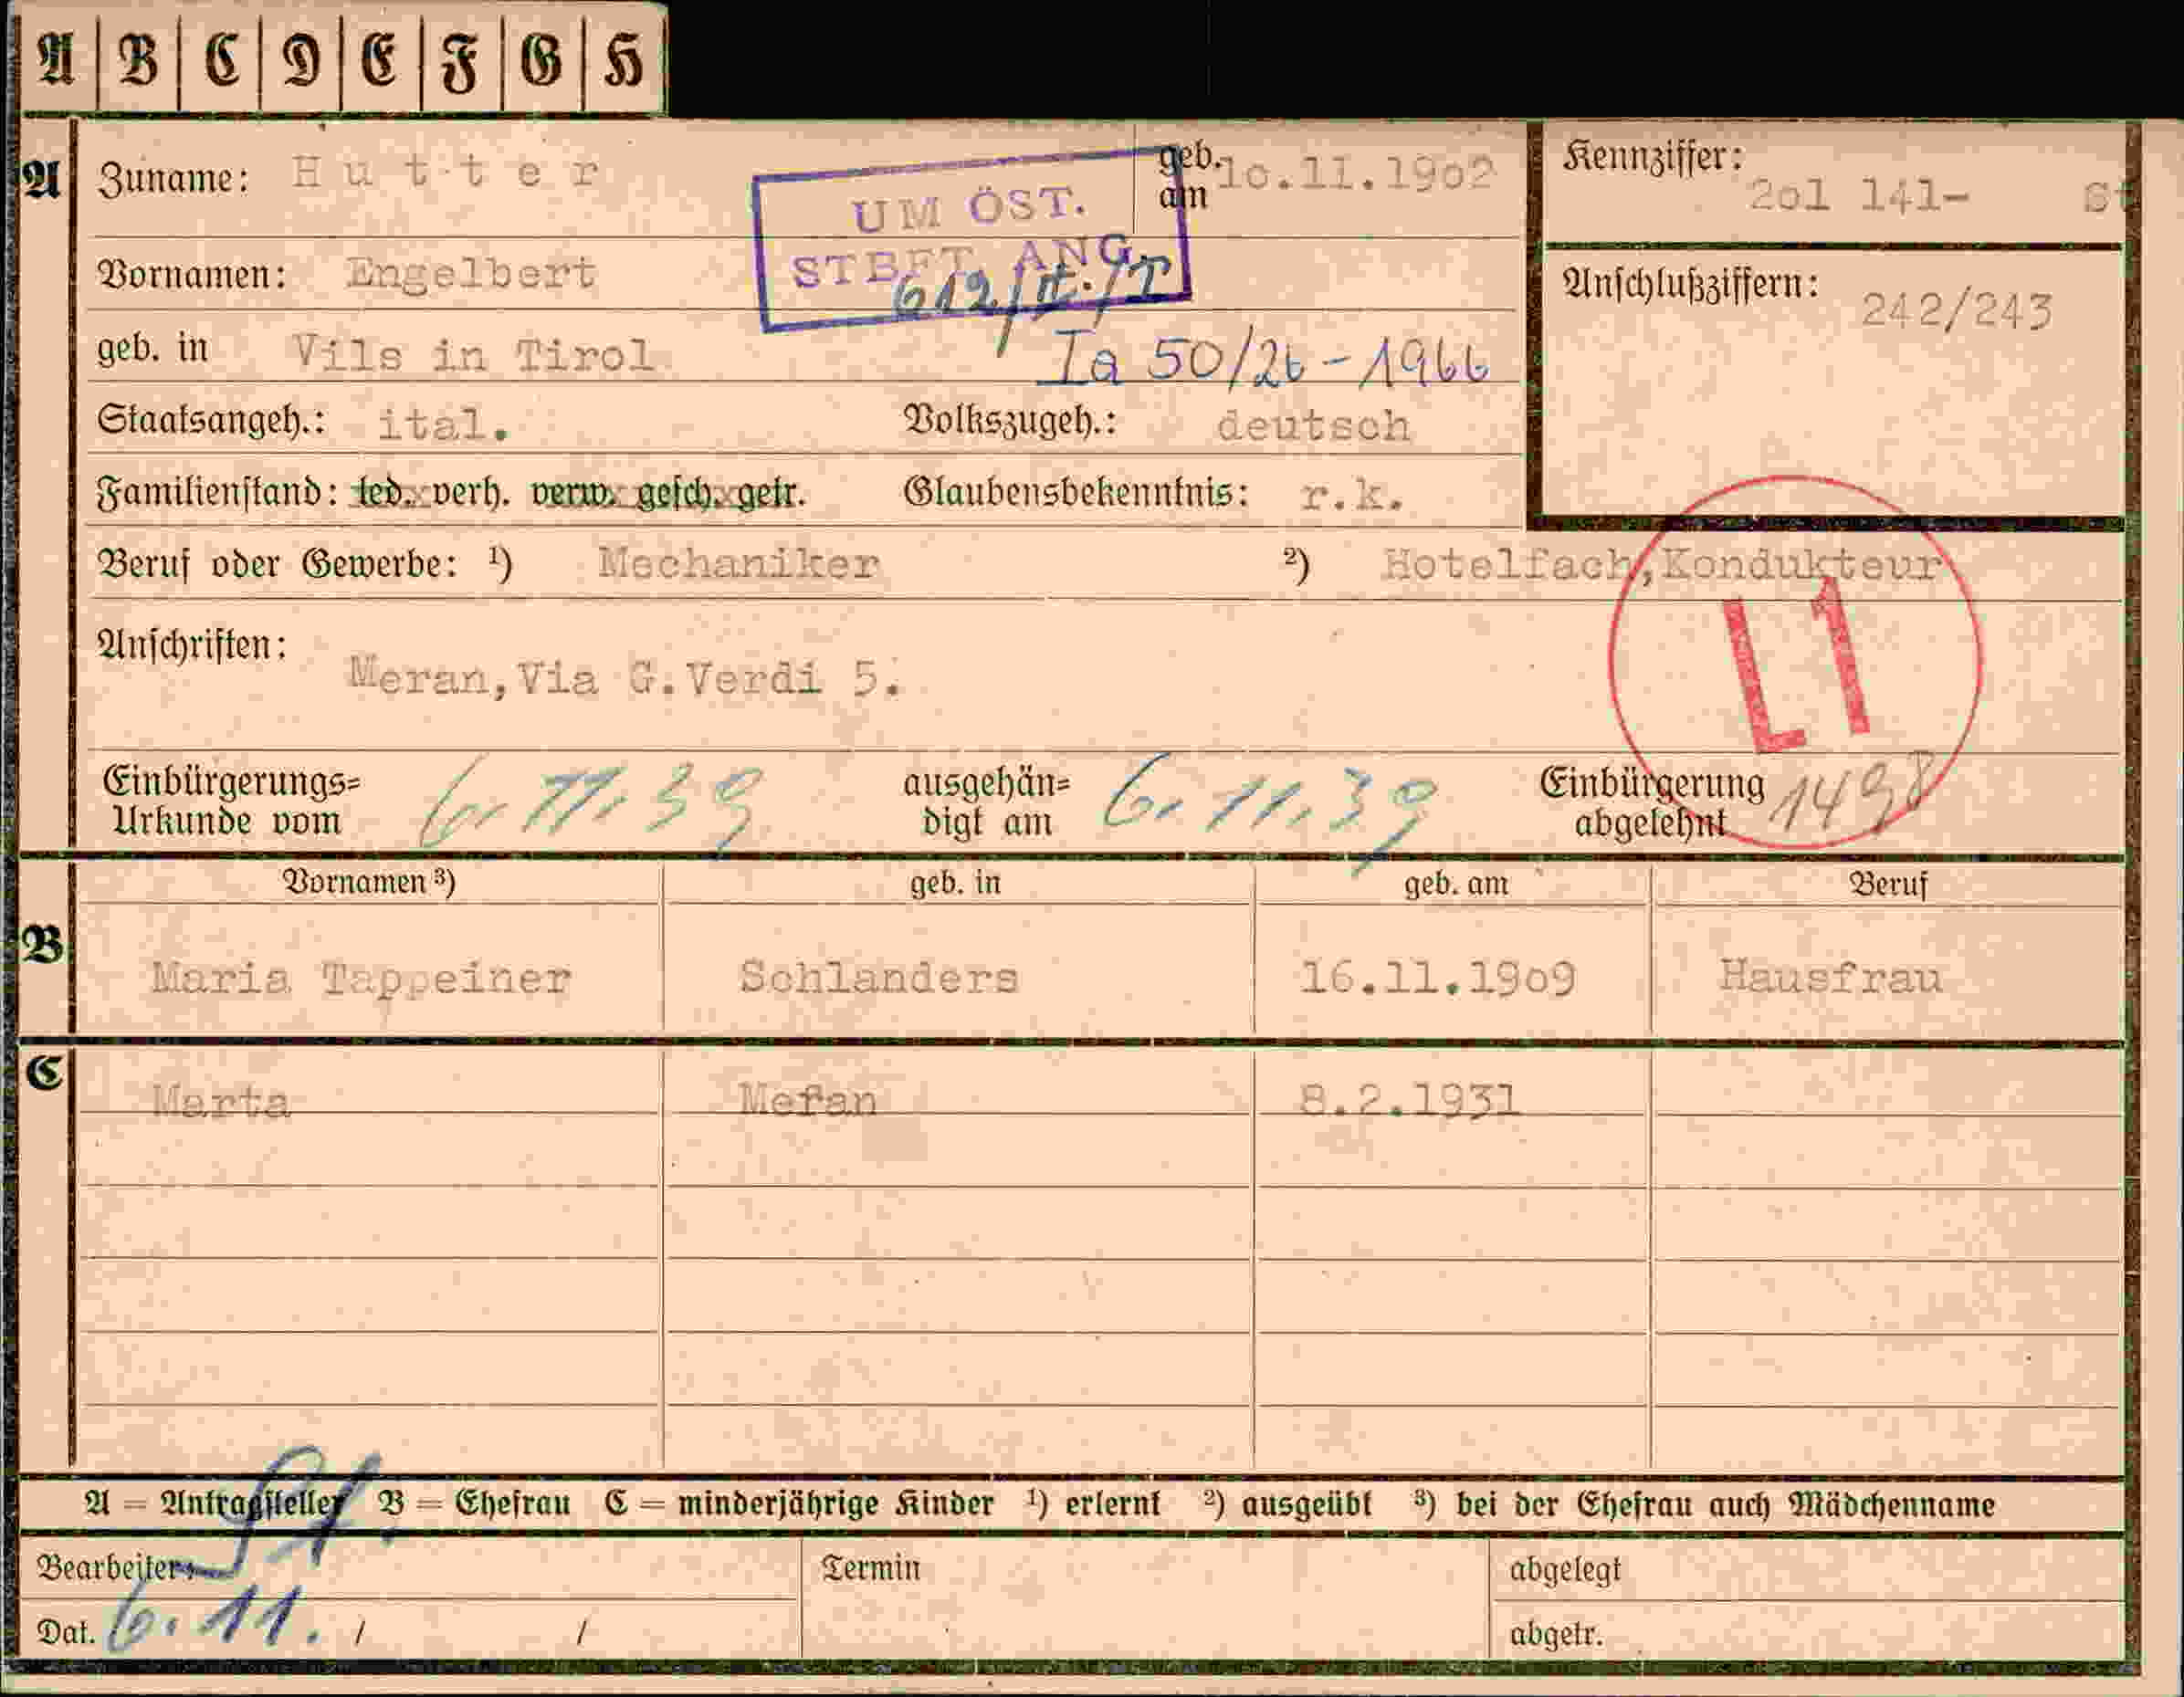 A B C D E F G H
A Zuname: Hutter geb. am 10.11.1902 Kennziffer: 2ol 141- St
UM ÖST.
STBFT. ANG.
612/II./T
Vornamen: Engelbert Anschlußziffern: 242/243
geb. in Vils in Tirol Ia 50/26-1966
Staatsangeh.: ital. Volkszugeh.: deutsch
Familienstand: led. verh. verw. gesch. getr. Glaubensbekenntnis: r.k.
Beruf oder Gewerbe: 1) Mechaniker 2) Hotelfach,Kondukteur
L1
Anschriften: Meran,Via G.Verdi 5.
Einbürgerungs= Urkunde vom 6.11.39 ausgehän= digt am 6.11.39 Einbürgerung abgelehnt 1498
Vornamen 3) geb. in geb. am Beruf
B Maria Tappeiner Schlanders 16.11.1909 Hausfrau
C Marta Meran 8.2.1931
A = Antragsteller B = Ehefrau C = minderjährige Kinder 1) erlernt 2) ausgeübt 3) bei der Ehefrau auch Mädchenname
Bearbeiter: Termin abgelegt
Dat. 6.11. / / abgetr.